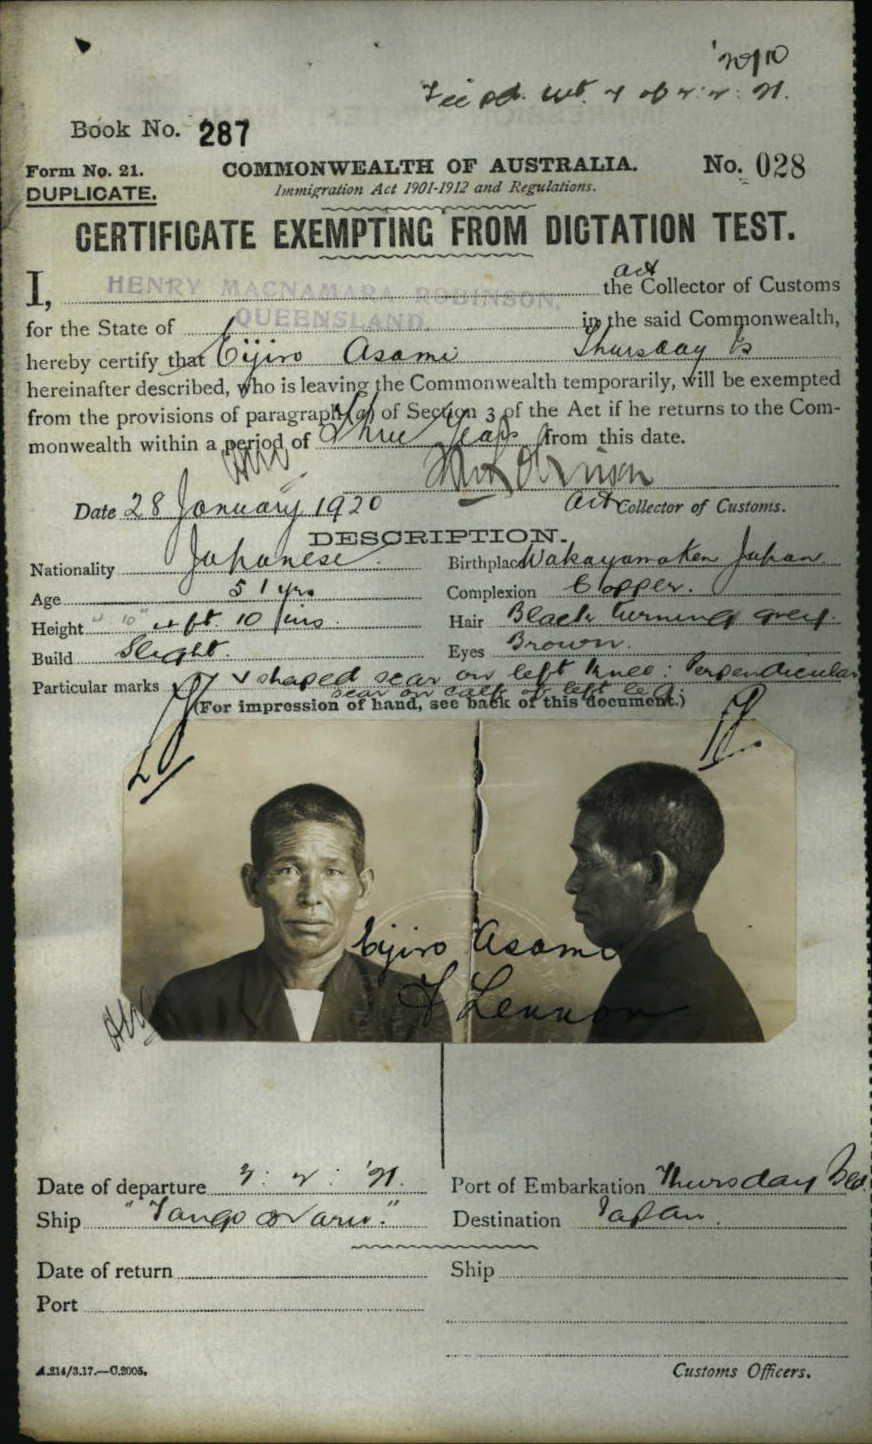 '20/10
Book No. 287
Form No. 21. COMMONWEALTH OF AUSTRALIA. No. 028
DUPLICATE. Immigration Act 1901-1912 and Regulations.
CERTIFICATE EXEMPTING FROM DICTATION TEST.
act
I, HENRY MACNAMARA ROBINSON, the Collector of Customs
for the State of QUEENSLAND. in the said Commonwealth,
hereby certify that Eijiro Asami Thursday Is
hereinafter described, who is leaving the Commonwealth temporarily, will be exempted
from the provisions of paragraph (a) of Section 3 of the Act if he returns to the Com-
monwealth within a period of Three Years from this date.
HMR
HMRobinson
Date 28 January 1920 Act Collector of Customs.
DESCRIPTION.
Nationality Japanese. Birthplace Wakayamaken Japan
Age 51 yrs Complexion Copper.
Height 4 ft. 10 ins. Hair Black turning grey.
Build Slight. Eyes Brown.
Particular marks V shaped scar on left knee: Perpendicular
scar on calf of left leg.
(For impression of hand, see back of this document.)
Eijiro Asami
Lennon
HMR
Date of departure Port of Embarkation Thursday Isld.
Ship "Tango Maru." Destination Japan.
Date of return Ship
Port
A.214/3.17.—C.2005. Customs Officers.